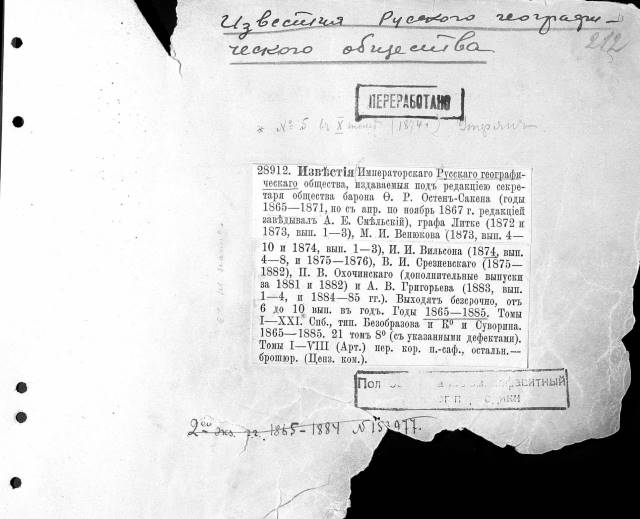 Известия Русского географи-
ческого общества
212
ПЕРЕРАБОТАНО
* № 5
28912. Извѣстія Императорскаго Русскаго географи-
ческаго общества, издаваемыя подъ редакціею секре-
таря общества барона Ѳ. Р. Остенъ-Сакена (годы
1865—1871, но съ апр. по ноябрь 1867 г. редакціей
завѣдывалъ А. Е. Смѣльскій), графа Литке (1872 и
1873, вып. 1—3), М. И. Венюкова (1873, вып. 4—
10 и 1874, вып. 1—3), И. И. Вильсона (1874, вып.
4—8, и 1875—1876), В. И. Срезневскаго (1875—
1882), П. В. Охочинскаго (дополнительные выпуски
за 1881 и 1882) и А. В. Григорьева (1883, вып.
1—4, и 1884—85 гг.). Выходятъ безсрочно, отъ
6 до 10 вып. въ годъ. Годы 1865—1885. Томы
I—XXI. Спб., тип. Безобразова и Кº и Суворина.
1865—1885. 21 томъ 8º (съ указанными дефектами).
Томы I—VIII (Арт.) пер. кор. п.-саф., остальн.—
брошюр. (Ценз. ком.).
2ой экз. гг. 1865-1884